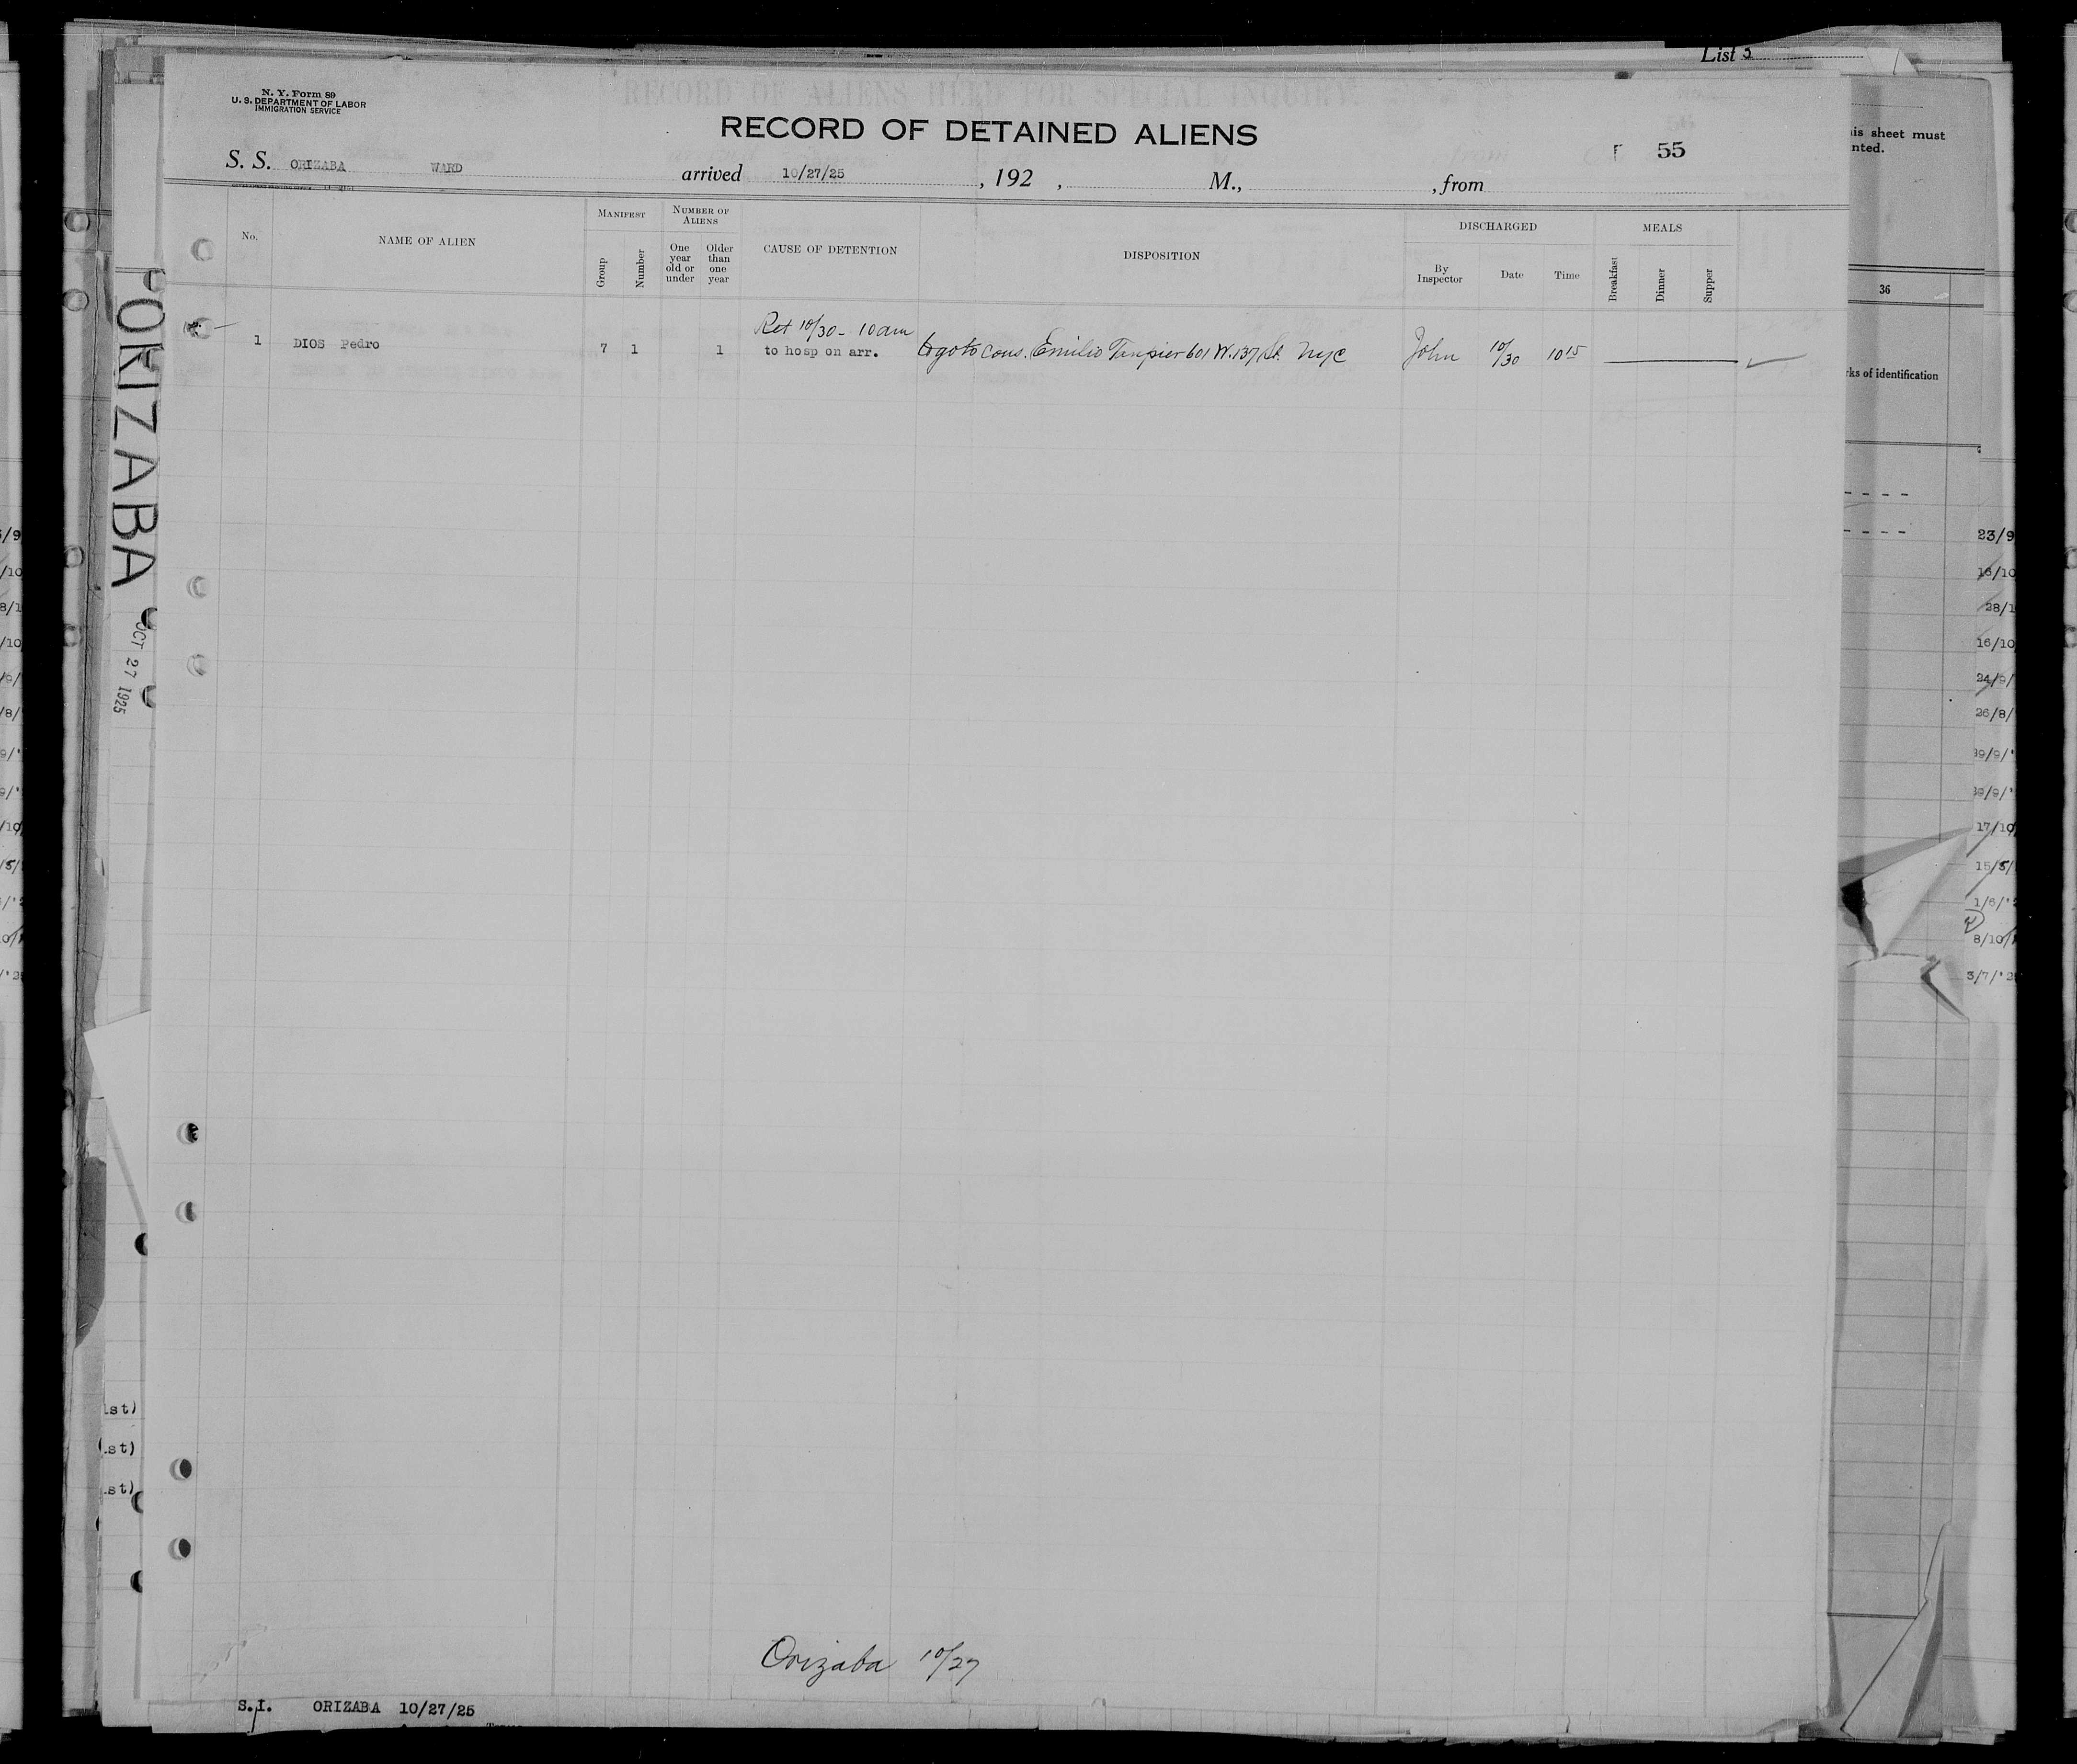 List 3
N. Y. Form 89
U. S. DEPARTMENT OF LABOR
IMMIGRATION SERVICE
RECORD OF ALIENS HELD FOR SPECIAL INQUIRY.
RECORD OF DETAINED ALIENS
55
S. S. ORIZABA WARD arrived 10/27/25, 192 , M., , from
his sheet must
nted.
No.
NAME OF ALIEN
MANIFEST
Group
Number
NUMBER OF ALIENS
One year old or under
Older than one year
CAUSE OF DETENTION
DISPOSITION
DISCHARGED
By Inspector
Date
Time
MEALS
Breakfast
Dinner
Supper
36
Ret 10/30 - 10 am
1 DIOS Pedro 7 1 1 to hosp on arr. to go to cons. Emilio 601 W. 137 St. NYC John 10/30 10 15
rks of identification
ORIZABA
OCT 27 1925
23/9
16/10
28/1
16/10
24/9/
26/8/
17/10
15/5/
1/6/'2
8/10/
3/7/'2
1st)
1st)
1st)
Orizaba 10/27
S.I. ORIZABA 10/27/25